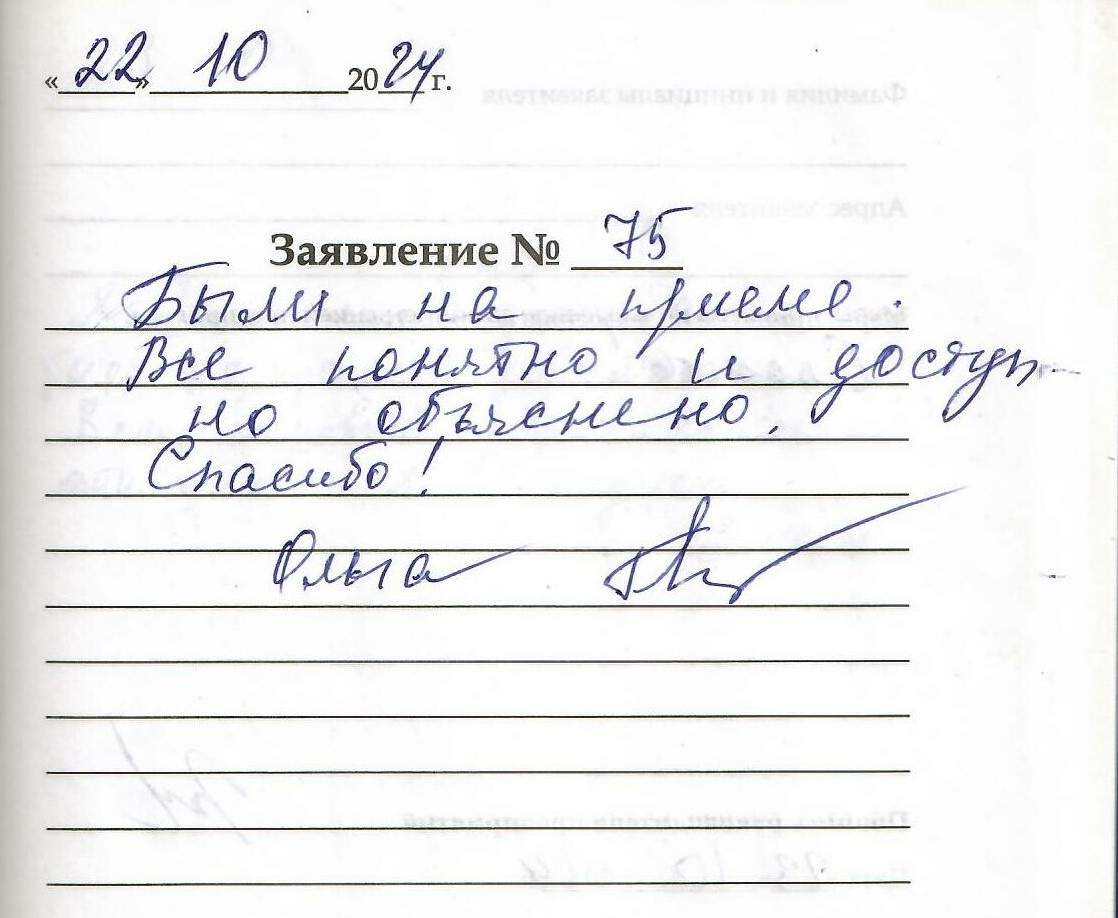 «22» 10 2024 г.
Заявление № 75
Были на приеме.
Все понятно и доступ-
но объяснено.
Спасибо!
Ольга